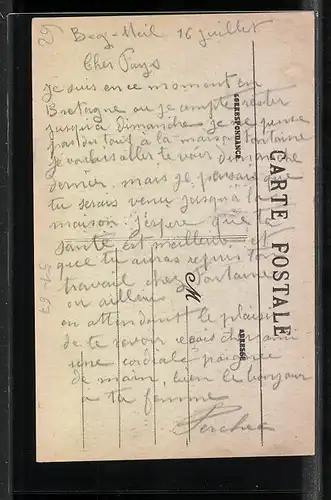 Beg-Meil 16 juillet
Cher Pays
je suis en ce moment en
Bretagne ou je compte rester
jusqu'à dimanche je ne pense
pas du tout à la maison Fontaine
je voulais aller te voir dimanche
dernier, mais je pensais que
tu serais venu jusqu'à la
maison j'espère que ta
santé est meilleur, et
que tu auras repris ton
travail chez Fontaine
ou ailleurs
en attendant le plaisir
de te revoir reçois cher ami
une cordiale poignée
de main, bien le bonjour
a ta femme
CORRESPONDANCE
CARTE POSTALE
M
ADRESSE